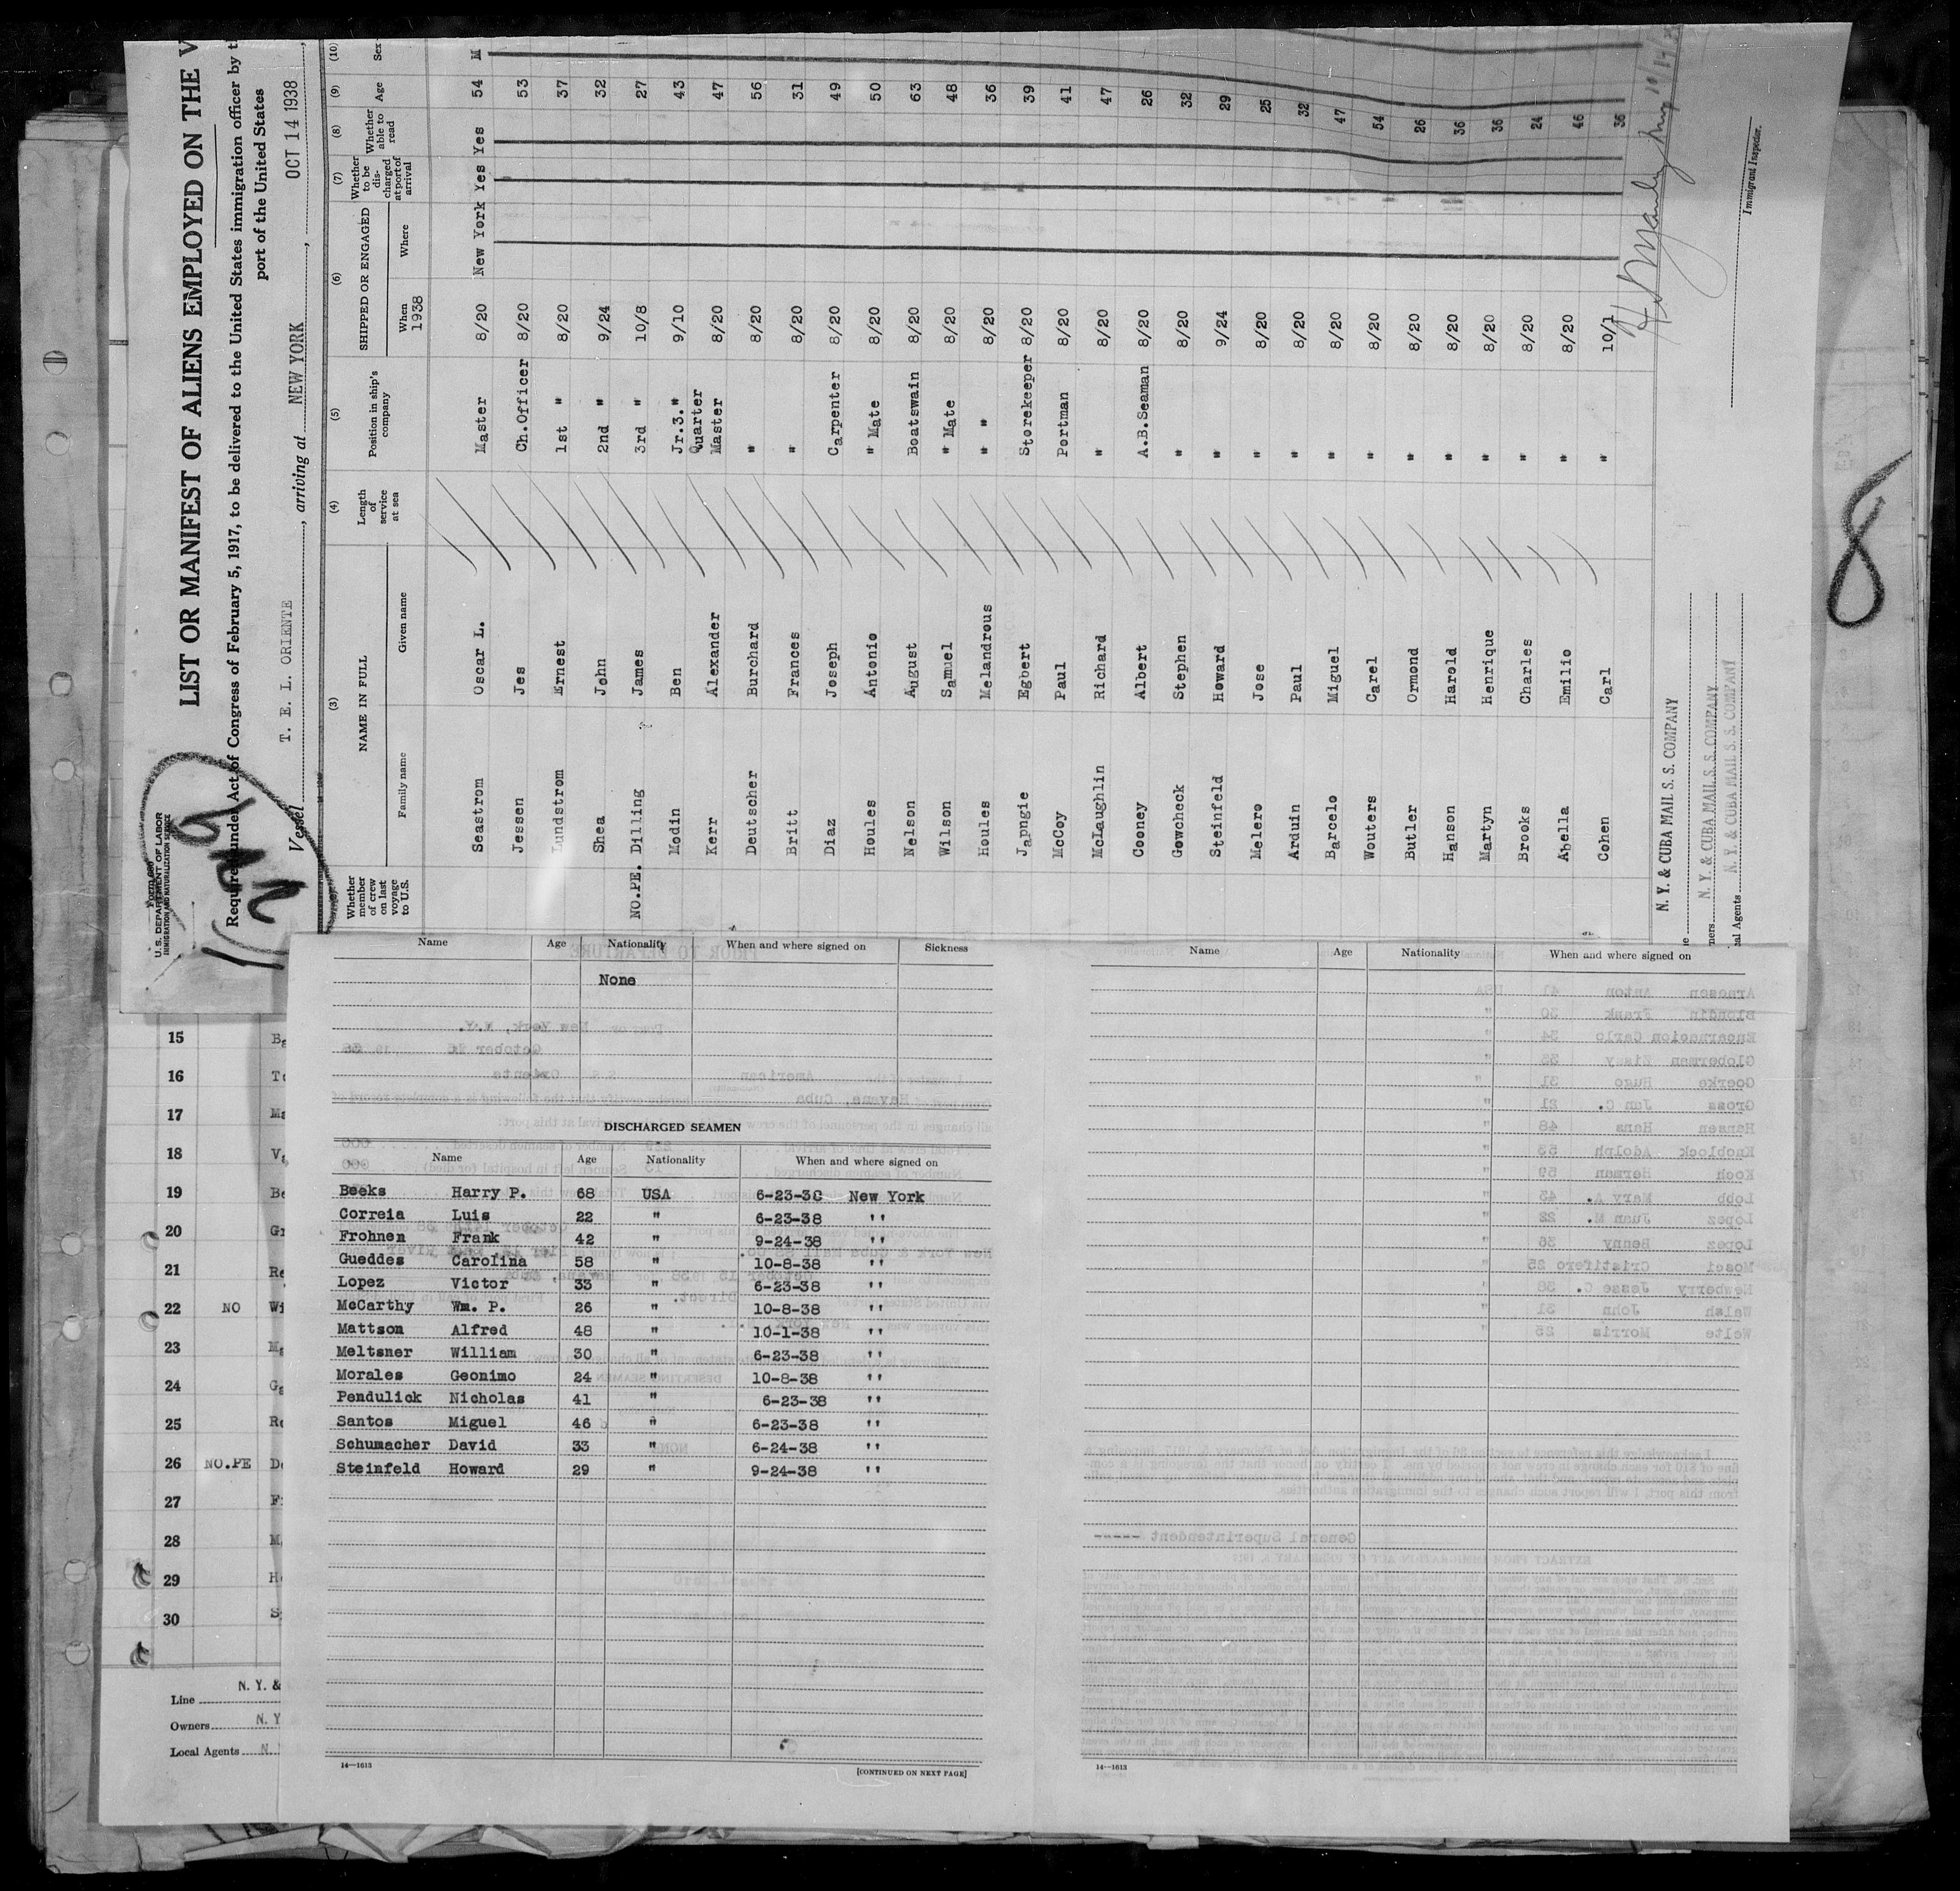 Form 680
U. S. DEPARTMENT OF LABOR
IMMIGRATION AND NATURALIZATION SERVICE
LIST OR MANIFEST OF ALIENS EMPLOYED ON THE V
Required under Act of Congress of February 5, 1917, to be delivered to the United States immigration officer by t
port of the United States
Vessel T. E. L. ORIENTE, arriving at NEW YORK, OCT 14 1938,
(3) (4) (5) (6) (7) (8) (9) (10)
Whether member of crew on last voyage to U.S. NAME IN FULL Length of service at sea Position in ship's company SHIPPED OR ENGAGED Whether to be discharged at port of arrival Whether able to read Age Sex
Family name Given name When 1938 Where
Seastrom Oscar L. Master 8/20 New York Yes Yes 54 M
Jessen Jes Ch.Officer 8/20 53
Lundstrom Ernest 1st " 8/20 37
Shea John 2nd " 9/24 32
NO.PE. Dilling James 3rd " 10/8 27
Modin Ben Jr.3." 9/10 43
Kerr Alexander Quarter Master 8/20 47
Deutscher Burchard " 8/20 56
Britt Frances " 8/20 31
Diaz Joseph Carpenter 8/20 49
Houles Antonio " Mate 8/20 50
Nelson August Boatswain 8/20 63
Wilson Samuel " Mate 8/20 48
Houles Melandrous " " 8/20 36
Japngie Egbert Storekeeper 8/20 39
McCoy Paul Portman 8/20 41
McLaughlin Richard " 8/20 47
Cooney Albert A.B.Seaman 8/20 26
Gowcheck Stephen " 8/20 32
Steinfeld Howard " 9/24 29
Melero Jose " 8/20 25
Arduin Paul " 8/20 32
Barcelo Miguel " 8/20 47
Wouters Carel " 8/20 54
Butler Ormond " 8/20 26
Hanson Harold " 8/20 36
Martyn Henrique " 8/20 36
Brooks Charles " 8/20 24
Abella Emilio " 8/20 46
Cohen Carl " 10/1 36
N. Y. & CUBA MAIL S. S. COMPANY
ners N. Y. & CUBA MAIL S. S. COMPANY
al Agents N. Y. & CUBA MAIL S. S. COMPANY
Immigrant Inspector.
8
Name Age Nationality When and where signed on Sickness
None
DISCHARGED SEAMEN
Name Age Nationality When and where signed on
Beeks Harry P. 68 USA 6-23-38 New York
Correia Luis 22 " 6-23-38 ''
Frohnen Frank 42 " 9-24-38 ''
Gueddes Carolina 58 " 10-8-38 ''
Lopez Victor 33 " 6-23-38 ''
McCarthy Wm. P. 26 " 10-8-38 ''
Mattson Alfred 48 " 10-1-38 ''
Meltsner William 30 " 6-23-38 ''
Morales Geonimo 24 " 10-8-38 ''
Pendulick Nicholas 41 " 6-23-38 ''
Santos Miguel 46 " 6-23-38 ''
Schumacher David 33 " 6-24-38 ''
Steinfeld Howard 29 " 9-24-38 ''
14—1613
[CONTINUED ON NEXT PAGE]
Name Age Nationality When and where signed on
Arnesen Anton 41 USA
Blondin Frank 30 "
Encarnacion Carlo 34 "
Globerman Sissy "
Goerke Hugo 31 "
Gross Jan C. 21 "
Hansen Hans 48 "
Knoblock Adolph 53 "
Koch Herman 59 "
Lobb Mary A. 43 "
Lopez Juan M. 22 "
Lopez Benny 36 "
Mosci Cristifero 25 "
Newberry Jesse C. 38 "
Walsh John 31 "
Welte Morris 25 "
General Superintendent -----
14—1613
15 B
16 T
17 Ma
18 V
19 Be
20 Gr
21 Re
22 NO Wi
23 Ma
24 Ga
25 Ro
26 NO.PE De
27 F
28 M
29 H
30 S
Line N. Y. &
Owners N. Y
Local Agents N.